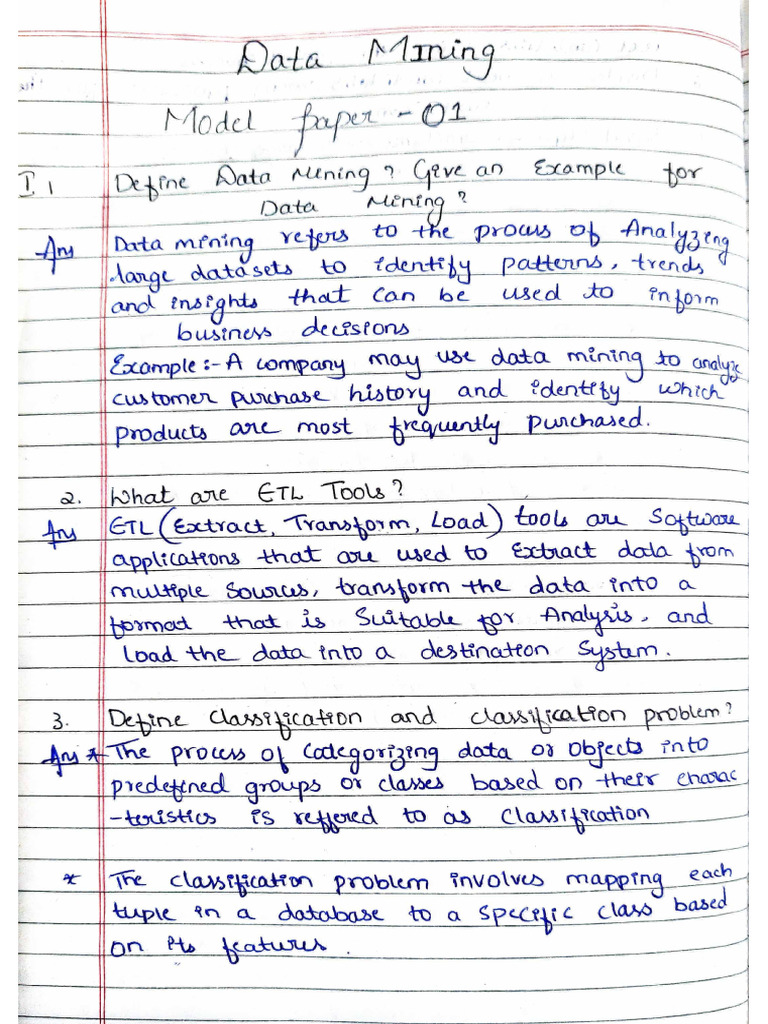 Data Mining
Model paper - 01
I 1 Define Data Mining? Give an Example for
Data Mining?
Ans Data mining refers to the process of Analyzing
large datasets to identify patterns, trends
and insights that can be used to inform
business decisions
Example:- A company may use data mining to analyze
customer purchase history and identify which
products are most frequently purchased.
2. What are ETL Tools?
Ans ETL (Extract, Transform, Load) tools are Software
applications that are used to Extract data from
multiple sources, transform the data into a
format that is Suitable for Analysis, and
load the data into a destination System.
3. Define Classification and classification problem?
Ans * The process of Categorizing data or Objects into
predefined groups or classes based on their charac
-teristics is reffered to as Classification
* The classification problem involves mapping each
tuple in a database to a specific class based
on its features.